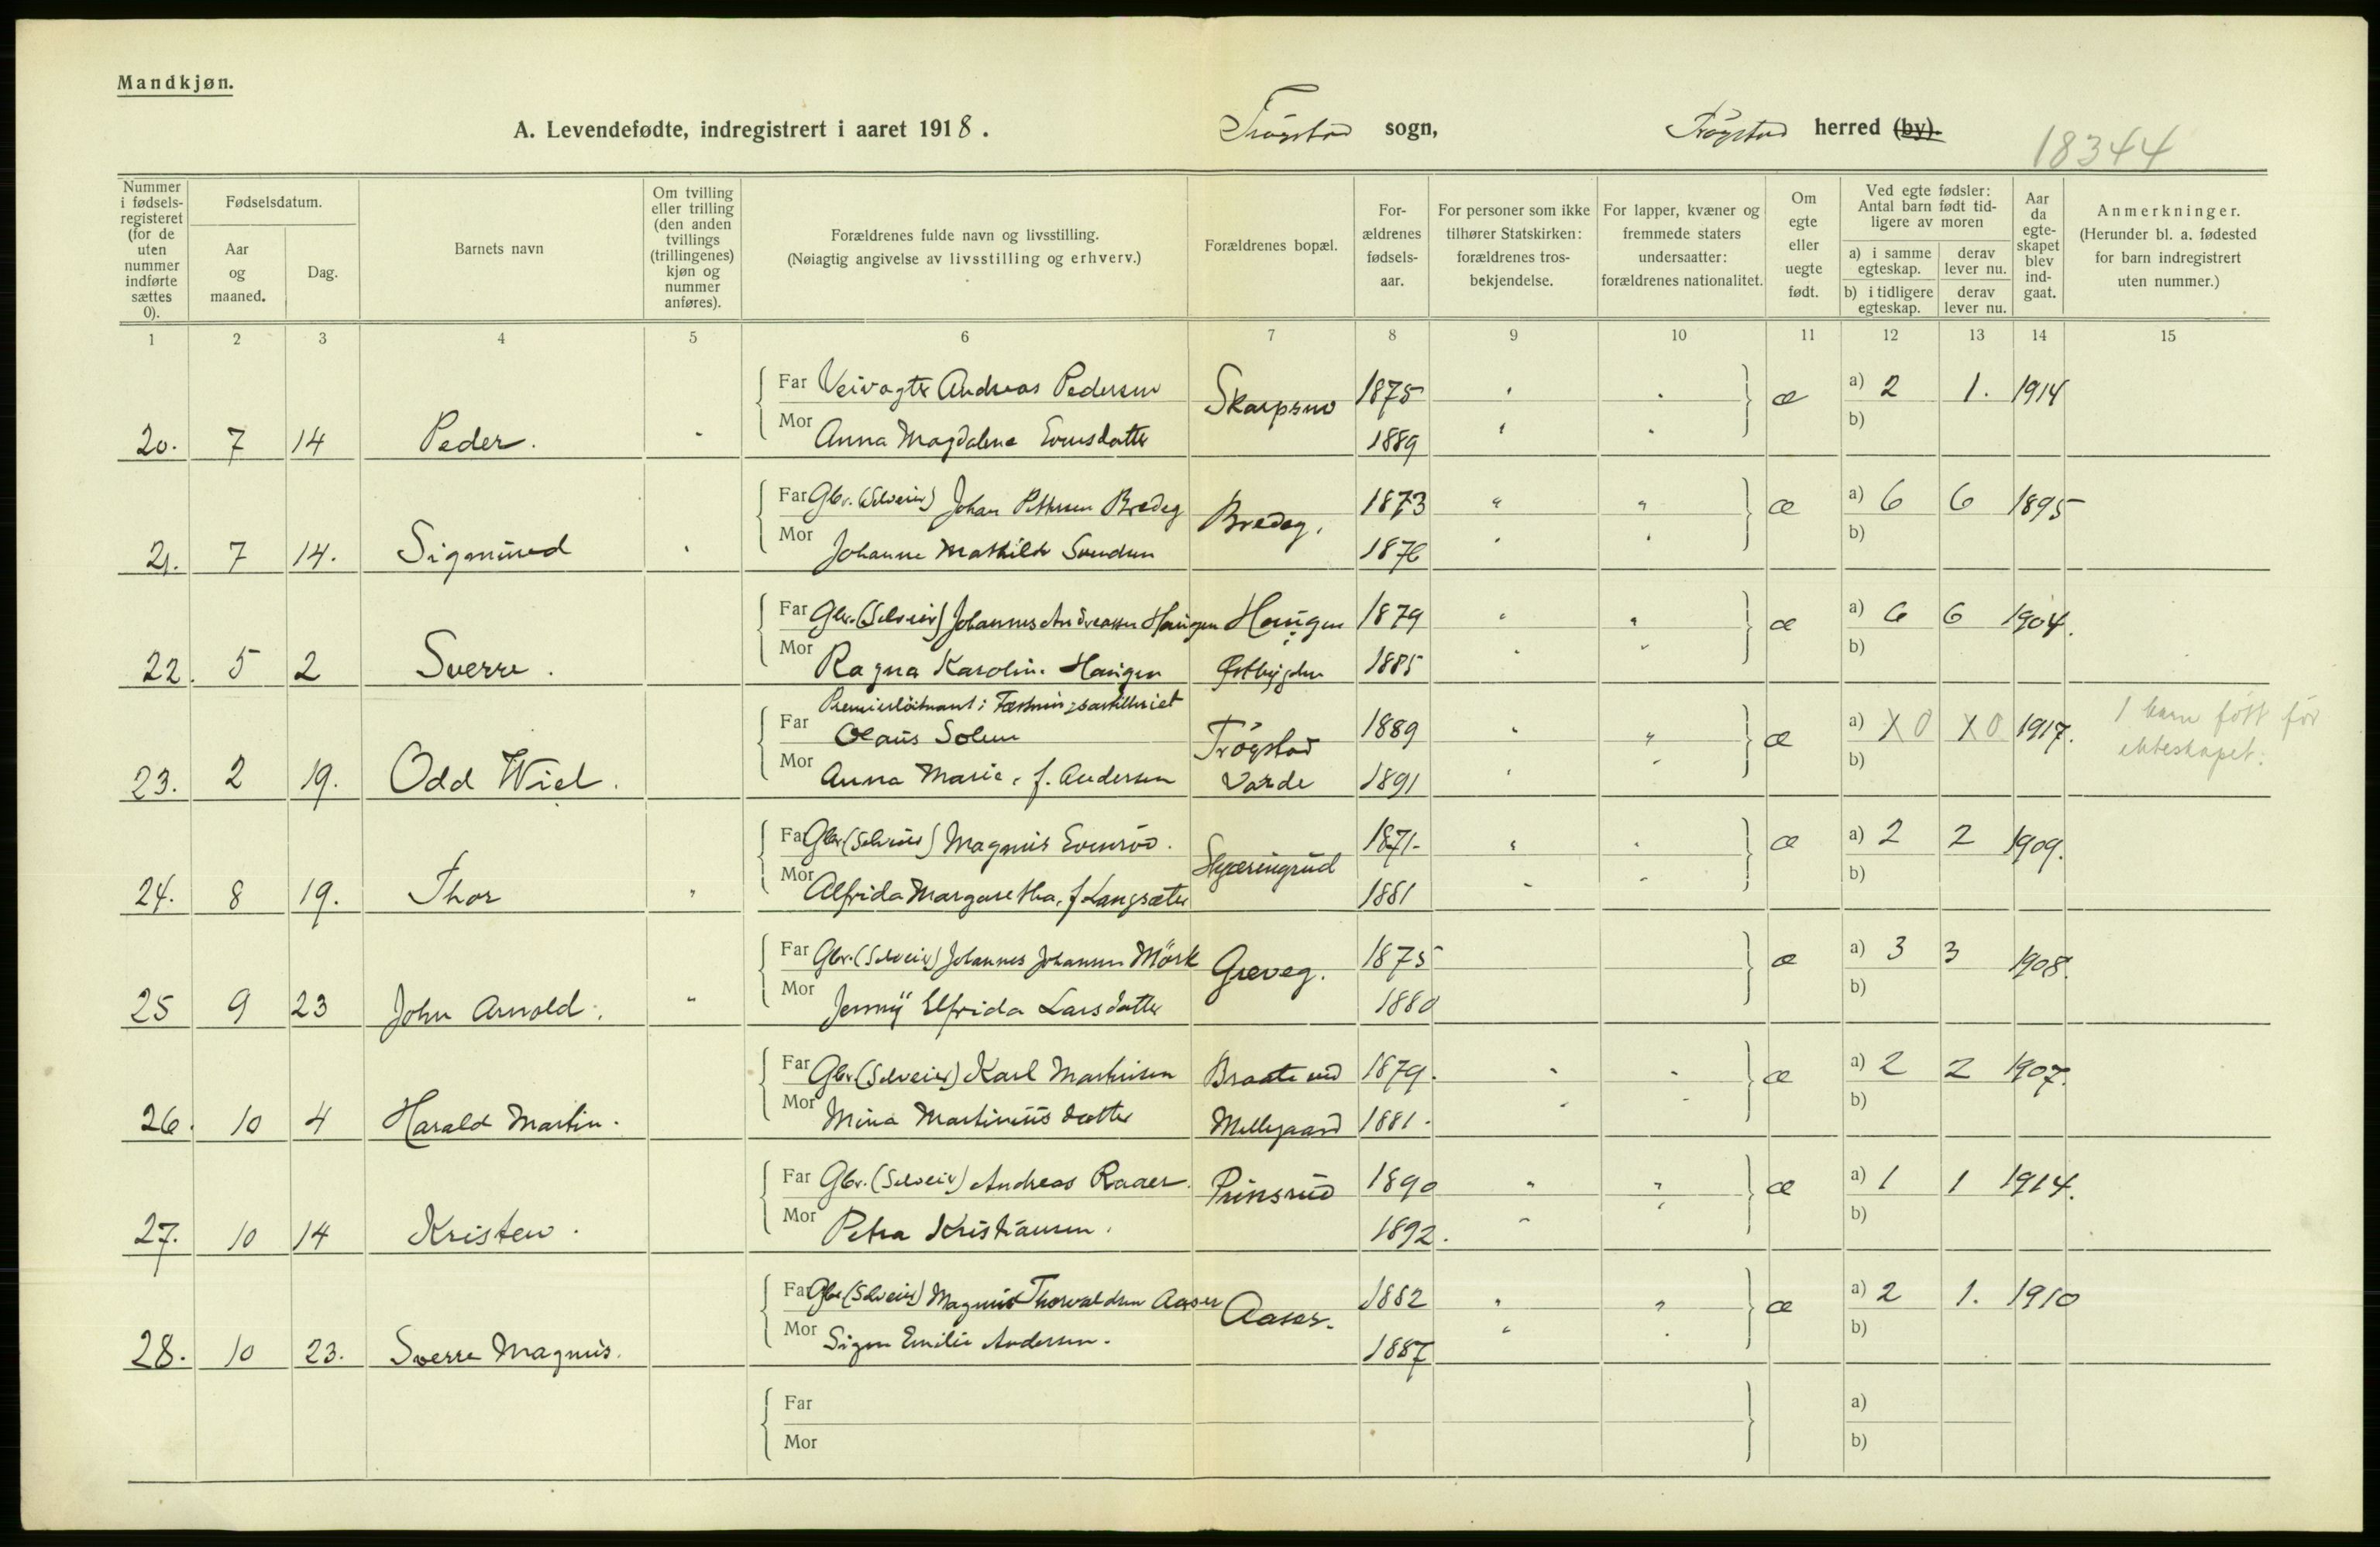 Mandkjøn.
A. Levendefødte, indregistrert i aaret 1918. Trögstad sogn, Trögstad herred (by).
18344
Nummer i fødsels-registeret (for de uten nummer indførte sættes 0).
Fødselsdatum.
Aar og maaned.
Dag.
Barnets navn
Om tvilling eller trilling (den anden tvillings (trillingenes) kjøn og nummer anføres).
Forældrenes fulde navn og livsstilling.
(Nøiagtig angivelse av livsstilling og erhverv.)
Forældrenes bopæl.
For-ældrenes fødsels-aar.
For personer som ikke tilhører Statskirken: forældrenes tros-bekjendelse.
For lapper, kvæner og fremmede staters undersaatter: forældrenes nationalitet.
Om egte eller uegte født.
Ved egte fødsler: Antal barn født tid-ligere av moren
a) i samme egteskap. derav lever nu.
b) i tidligere egteskap. derav lever nu.
Aar da egte-skapet blev ind-gaat.
Anmerkninger.
(Herunder bl. a. fødested for barn indregistrert uten nummer.)
1 2 3 4 5 6 7 8 9 10 11 12 13 14 15
Far Veivogter Andreas Pedersen Skarpsno 1875 æ a) 2 1. 1914
20. 7 14 Peder. Mor Anna Magdalene Evensdatter 1889 b)
Far Gbr. (Selveier) Johan Pettersen Bredeg Bredeg. 1873 " " æ a) 6 6 1895
21. 7 14. Sigmund Mor Johanne Mathilde Svendsen 1876 b)
Far Gbr. (Selveier) Johannes Andreassen Haugen Haugen 1879 " " æ a) 6 6 1904.
22. 5 2 Sverre. Mor Ragna Karolin. Haugen Østbygden 1885 b)
Premierløitnant i Fæstningsartilleriet
Far Olaus Solem Trögstad 1889 " " æ a) X 0 X 0 1917. 1 barn född før
23. 2 19. Odd Wiel. Mor Anna Marie, f. Andersen Varde 1891 b) ekteskapet.
Far Gbr. (Selveier) Magnus Evensrö. Skjæringrud 1871- " " æ a) 2 2 1909.
24. 8 19. Thor " Mor Alfrida Margaretha, f. Langsæter 1881 b)
Far Gbr. (Selveier) Johannes Johansen Mörk Greveg. 1875 æ a) 3 3 1908.
25 9 23 John Arnold. " Mor Jenny Elfrida Larsdatter 1880 b)
Far Gbr. (Selveier) Karl Martinsen Braate ved 1879. " " æ a) 2 2 1907.
26. 10 4 Harald Martin. Mor Mina Martiniusdatter Mellegaard 1881. b)
Far Gbr. (Selveier) Andreas Raaer Prinsrud 1890 " " æ a) 1 1 1914.
27. 10 14 Kristen. Mor Petra Kristiansen. 1892. b)
Far Gbr (Selveier) Magnus Thorvaldsen Aaser Aaser. 1882 " " æ a) 2 1. 1910
28. 10 23. Sverre Magnus. Mor Signe Emilie Andersen. 1887 b)
Far a)
Mor b)